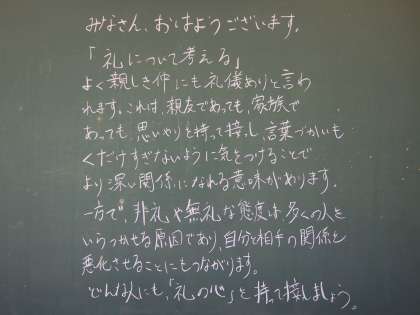 みなさん、おはようございます。
「礼について考える」
よく親しき仲にも礼儀ありと言わ
れます。これは、親友であっても、家族で
あっても、思いやりを持って接し、言葉づかいも
くだけすぎないように気をつけることで
より深い関係になれる意味があります。
一方で、非礼や無礼な態度は、多くの人を
いらつかせる原因であり、自分と相手の関係を
悪化させることにもつながります。
どんな人にも、「礼の心」を持って接しましょう。